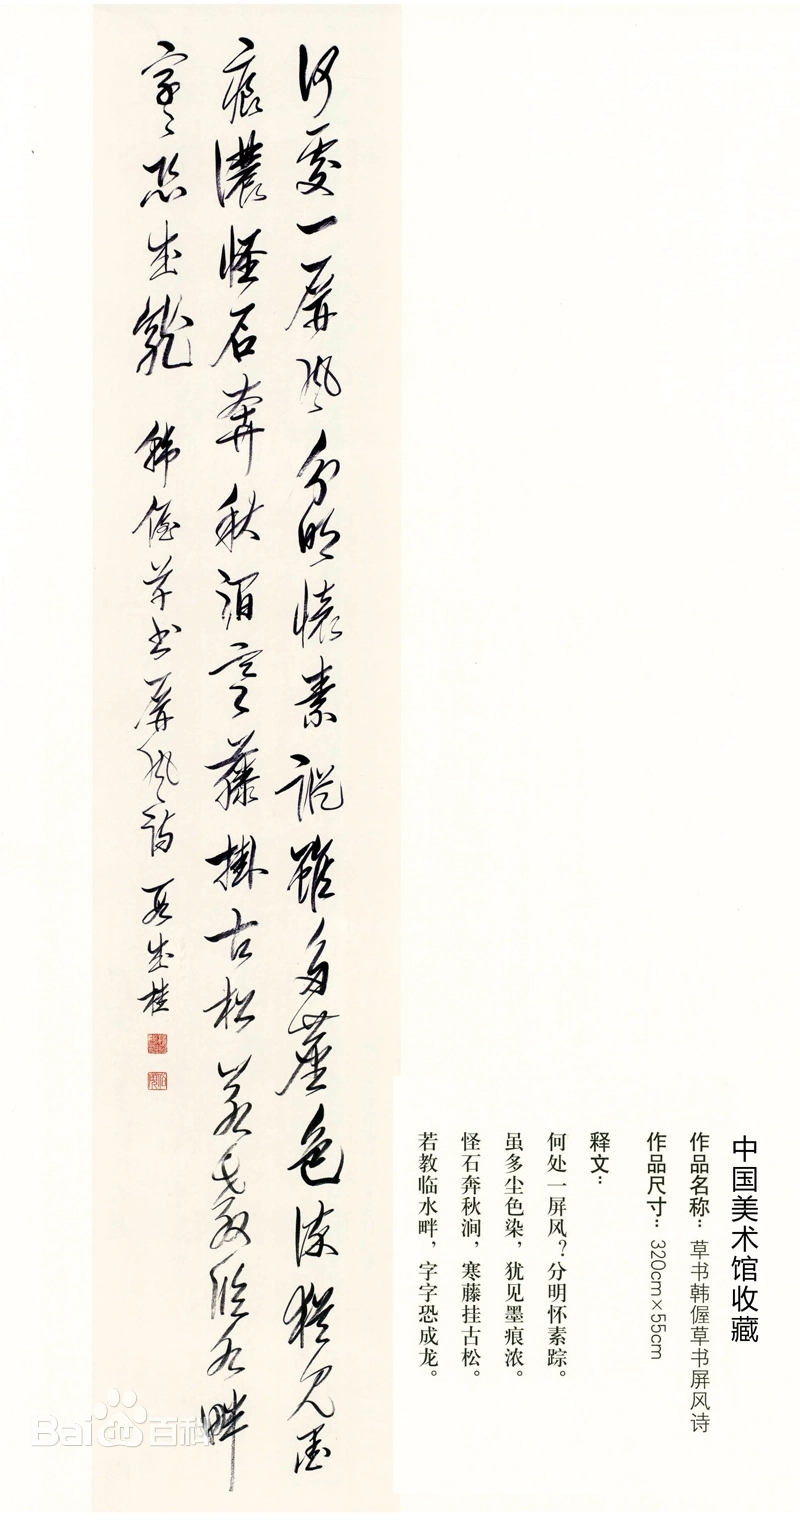 中国美术馆收藏
作品名称：草书韩偓草书屏风诗
作品尺寸：320cm×55cm
释文：
何处一屏风？分明怀素踪。
虽多尘色染，犹见墨痕浓。
怪石奔秋涧，寒藤挂古松。
若教临水畔，字字恐成龙。
何處一屏風分明懷素蹤雖多塵色染猶見墨
痕濃怪石奔秋澗寒藤掛古松若教臨水畔
字〻恐成龍 韓偓草書屏風詩 段成桂
Bai百科